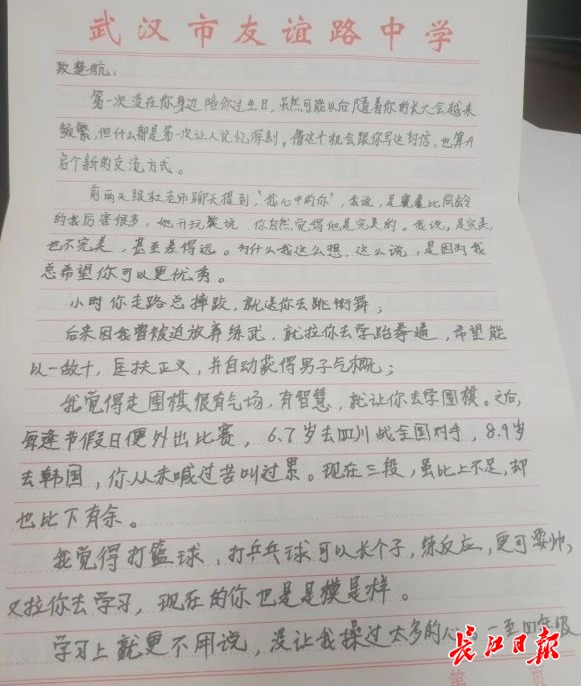 武汉市友谊路中学
致楚航：
第一次没在你身边陪你过生日，虽然可能以后随着你的长大会越来
频繁，但什么都是第一次让人记忆深刻。借这个机会跟你写这封信，也算开
启个新的交流方式。
前两天跟杜老师聊天提到，“我心中的你”，我说，是比同龄
的我厉害很多，她开玩笑说 你自然觉得他是完美的。我说，是完美，
也不完美，甚至差得远。为什么我这么想，这么说，是因为我
总希望你可以更优秀。
小时你走路总摔跤，就送你去跳街舞；
后来因我曾被迫放弃练武，就拉你去学跆拳道，希望能
以一敌十，匡扶正义，并自动获得男子气概；
我觉得走围棋很有气场，有智慧，就让你去学围棋。之后，
每逢节假日便外出比赛，6.7岁去四川战全国对手，8.9岁
去韩国，你从未喊过苦叫过累。现在三段，虽比上不足，却
也比下有余。
我觉得打篮球，打乒乓球可以长个子，练反应，更可耍帅，
又拉你去学习，现在的你也是是模是样。
学习上就更不用说，没让我操过太多的心。一至四年级
长江日报
第 页